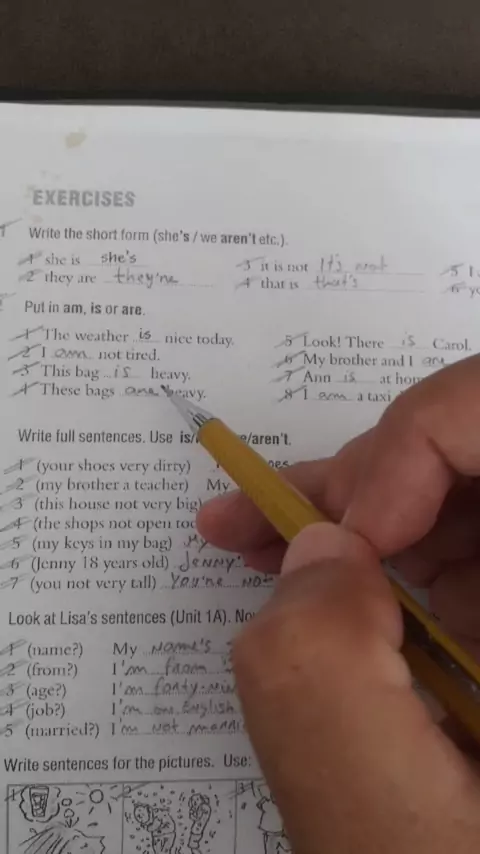 EXERCISES
1 Write the short form (she's / we aren't etc.).
1 she is she's 3 it is not It's not 5 I
2 they are they're 4 that is that's 6
Put in am, is or are.
1 The weather is nice today. 5 Look! There is Carol.
2 I am not tired. 6 My brother and I are
3 This bag is heavy. 7 Ann is at
4 These bags are heavy. 8 I am a taxi
Write full sentences. Use
1 (your shoes very dirty)
2 (my brother a teacher) My
3 (this house not very big)
4 (the shops not open
5 (my keys in my bag) My
6 (Jenny 18 years old) Jenny's
7 (you not very tall) You're not
Look at Lisa's sentences (Unit 1A).
1 (name?) My name's
2 (from?) I'm from
3 (age?) I'm forty-
4 (job?) I'm an English
5 (married?) I'm not
Write sentences for the pictures. Use: